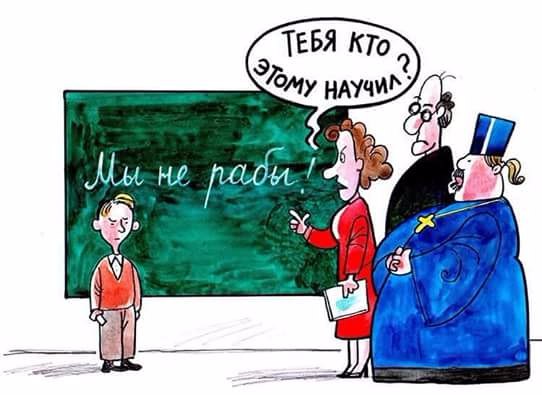 ТЕБЯ КТО
ЭТОМУ НАУЧИЛ?
Мы не рабы!